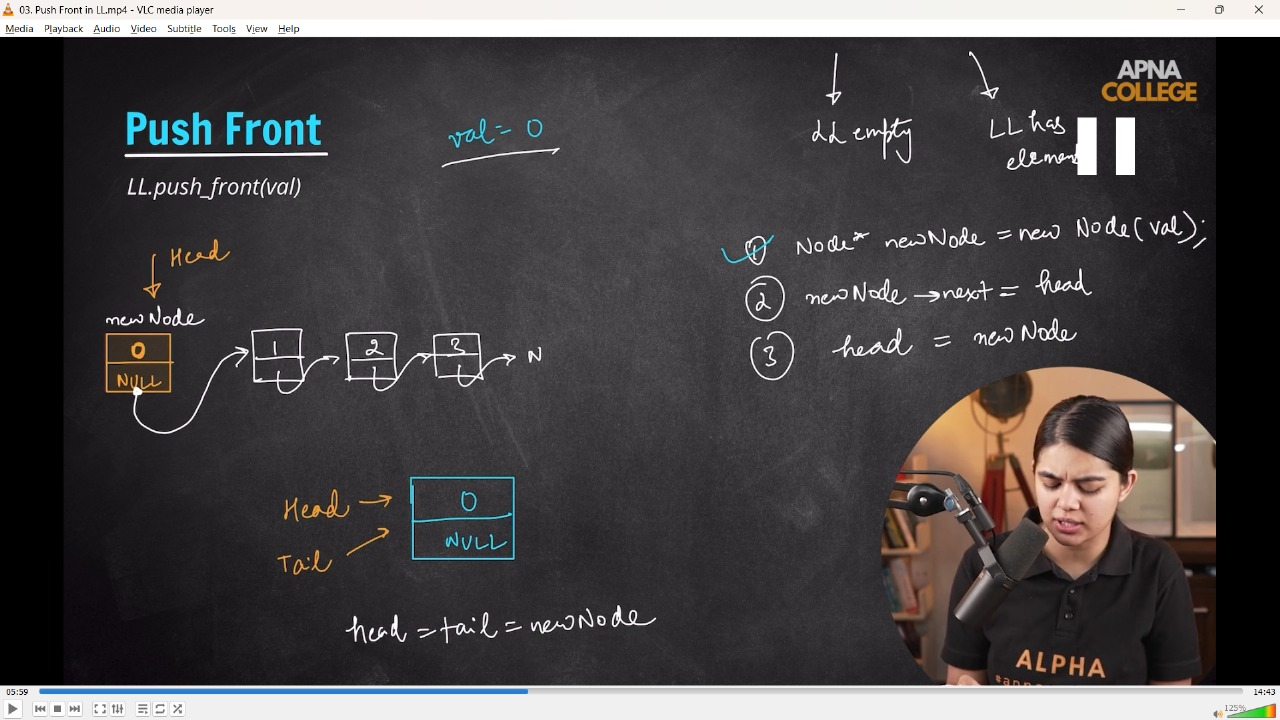 03. Push Front in LL.mp4 - VLC media player
Media Playback Audio Video Subtitle Tools View Help
APNA
COLLEGE
Push Front
val = 0
LL empty
LL has
LL.push_front(val)
Head
1 Node* newNode = new Node(val);
2 newNode → next = head
3 head = newNode
newNode
0
NULL
1 2 3 N
Head
Tail
0
NULL
head = tail = newNode
ALPHA
05:59
14:43
125%